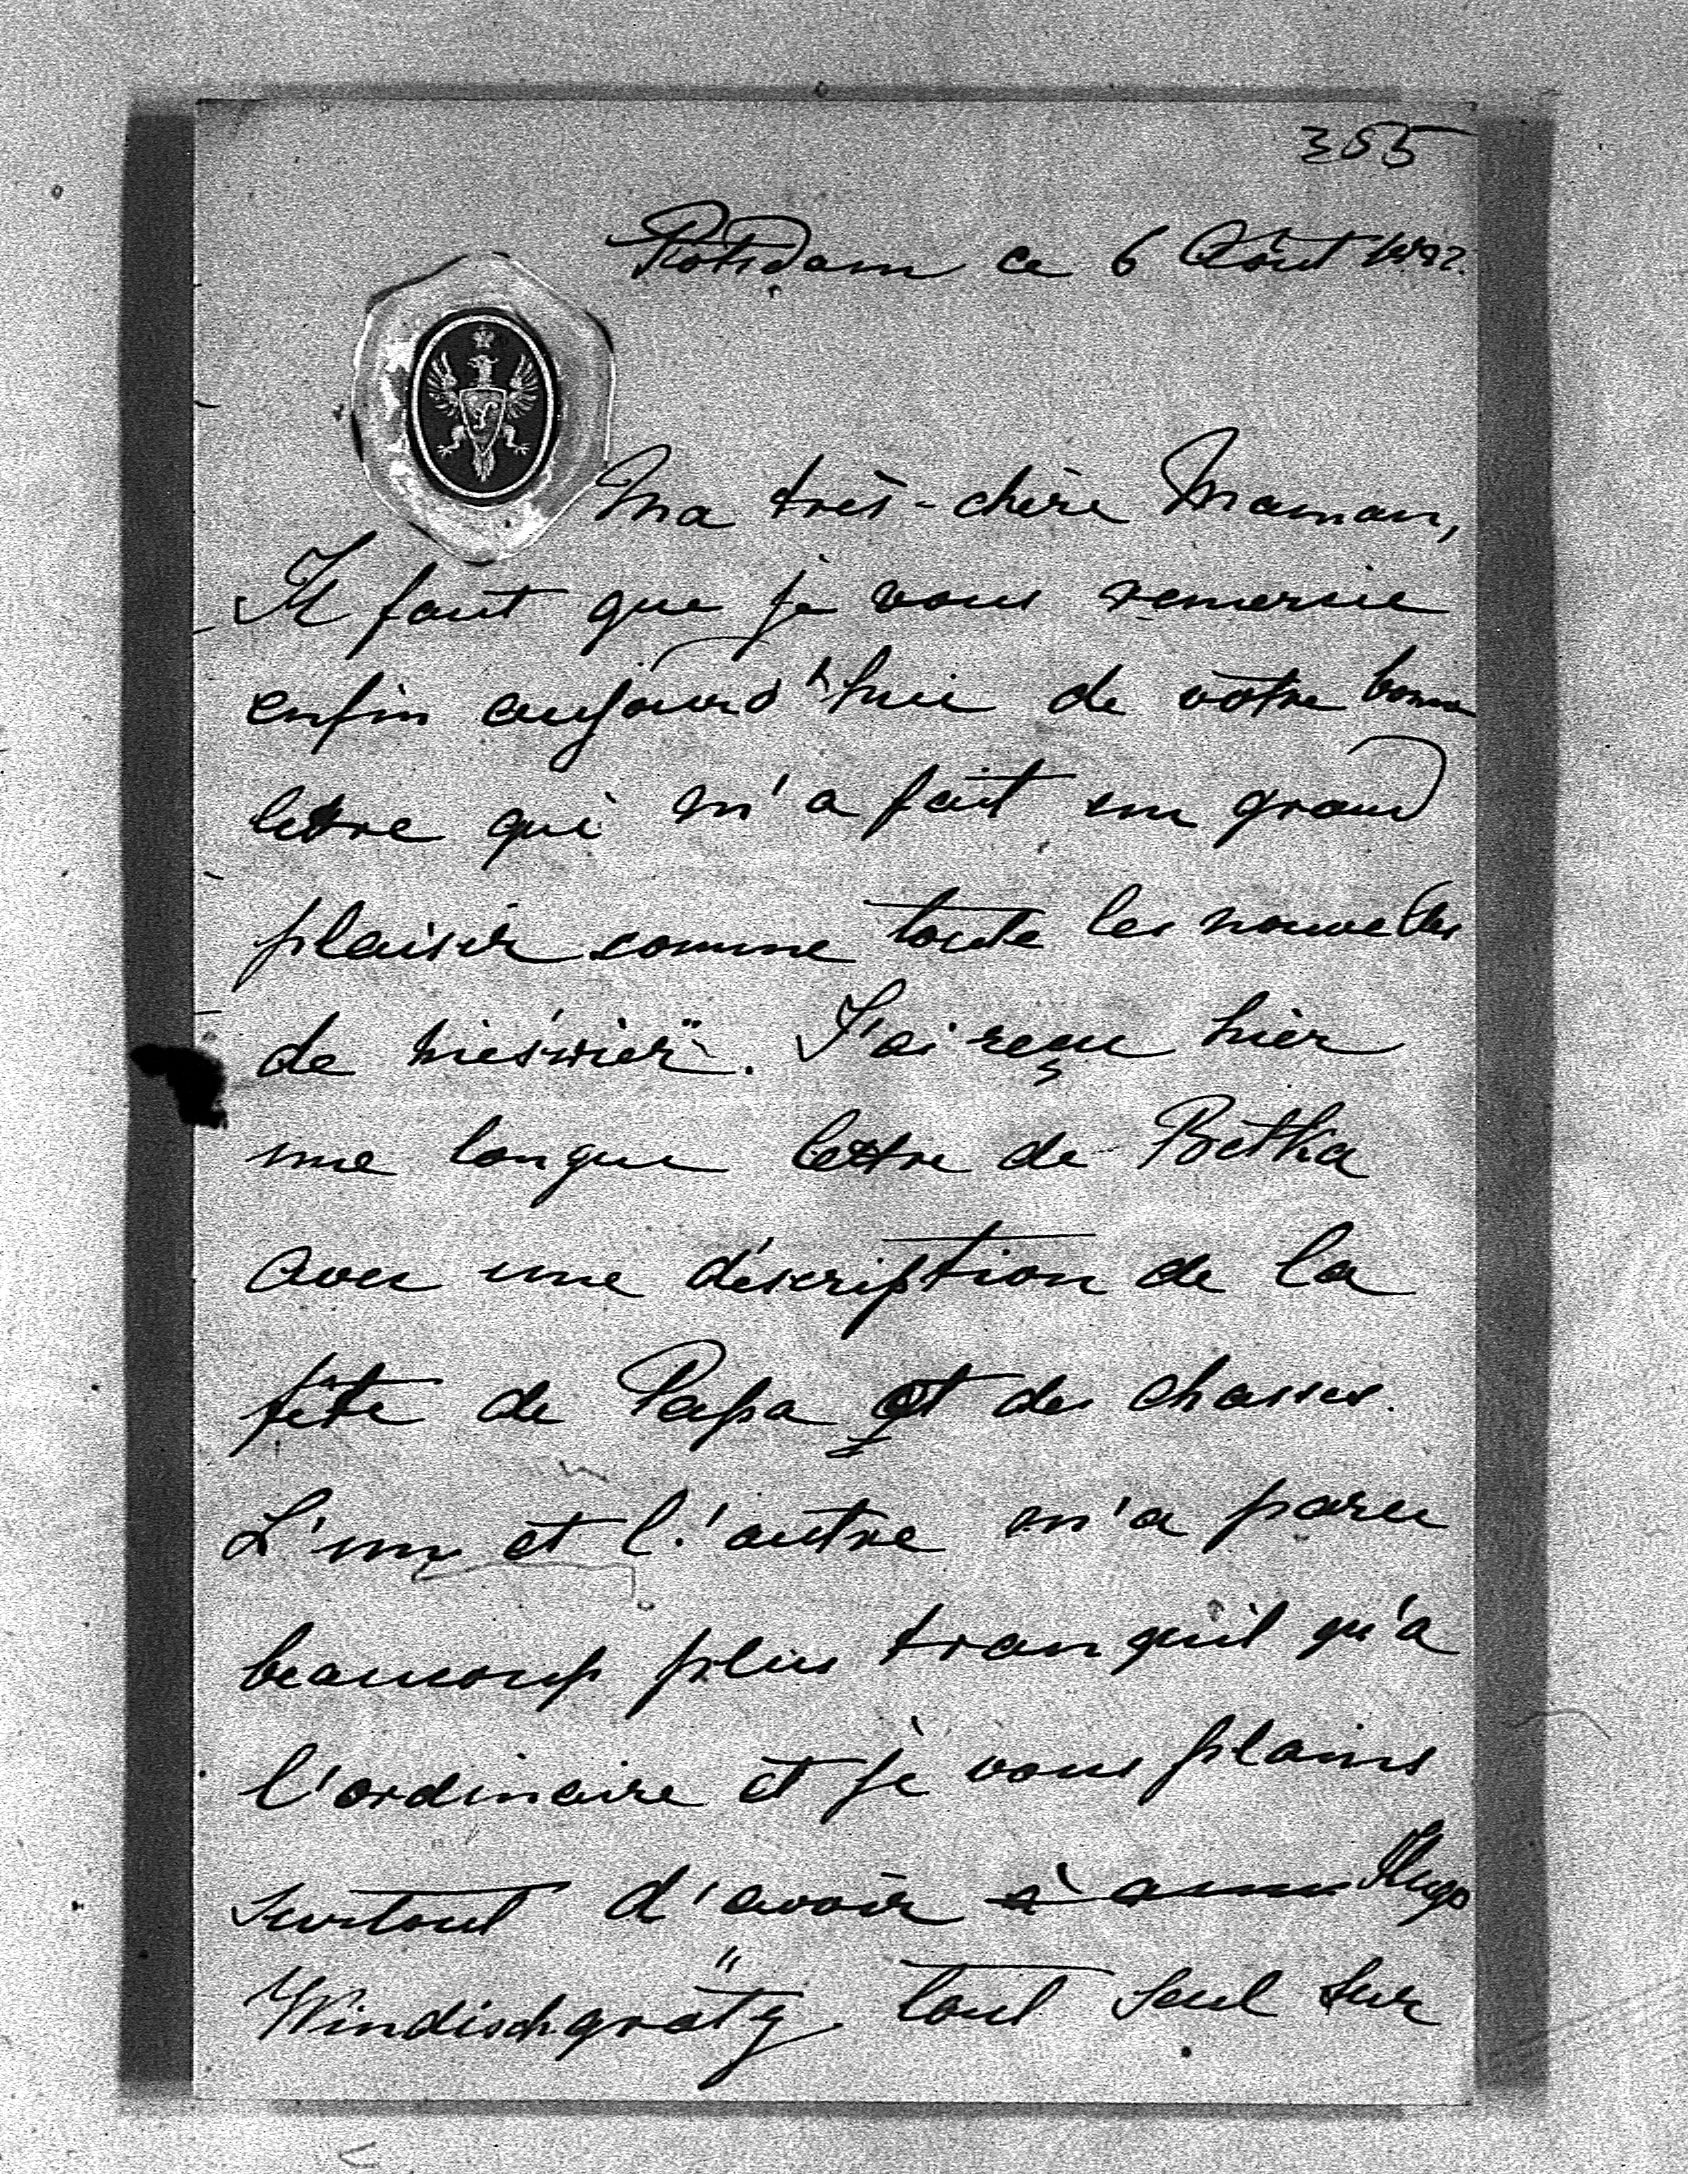 355
Potsdam ce 6 Août 1892.
Ma très-chère Maman,
Il faut que je vous remercie
enfin aujourd'hui de vôtre bonne
lettre qui m'a fait un grand
plaisir comme toute les nouvelles
de Nieświeź. J'ai reçu hier
une longue lettre de Betka
avec une déscription de la
fête de Papa et des chasses.
L'un et l'autre m'a paru
beaucoup plus tranquil qu'à
l'ordinaire et je vous plains
surtout d'avoir Hugo
Windischgrätz tout seul sur